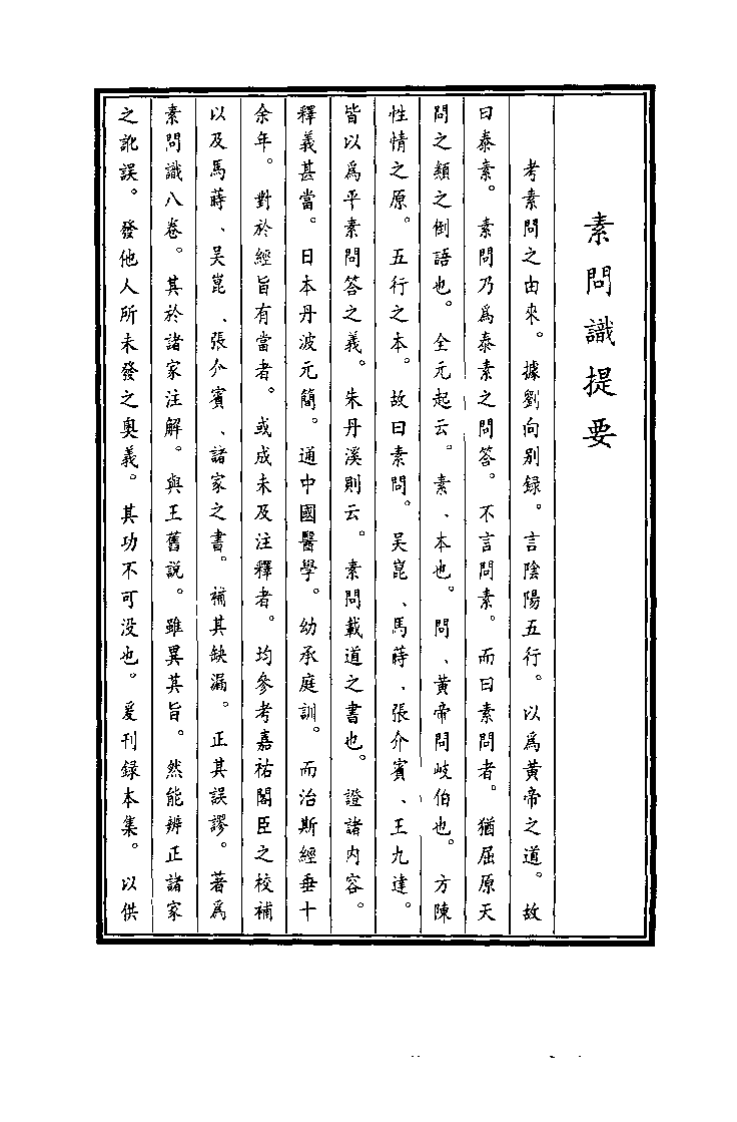 素問識提要
考素問之由來。據劉向別録。言陰陽五行。以爲黃帝之道。故
曰泰素。素問乃爲泰素之問答。不言問素。而曰素問者。猶屈原天
問之類之倒語也。全元起云。素、本也。問、黃帝問岐伯也。方陳
性情之原。五行之本。故曰素問。吴崑、馬蒔、張介賓、王九達。
皆以爲平素問答之義。朱丹溪則云。素問載道之書也。證諸内容。
釋義甚當。日本丹波元簡。通中國醫學。幼承庭訓。而治斯經垂十
余年。對於經旨有當者。或成未及注釋者。均參考嘉祐閣臣之校補
以及馬蒔、吴崑、張介賓、諸家之書。補其缺漏。正其誤謬。著爲
素問識八卷。其於諸家注解。與王舊説。雖異其旨。然能辨正諸家
之訛誤。發他人所未發之奥義。其功不可没也。爰刊録本集。以供